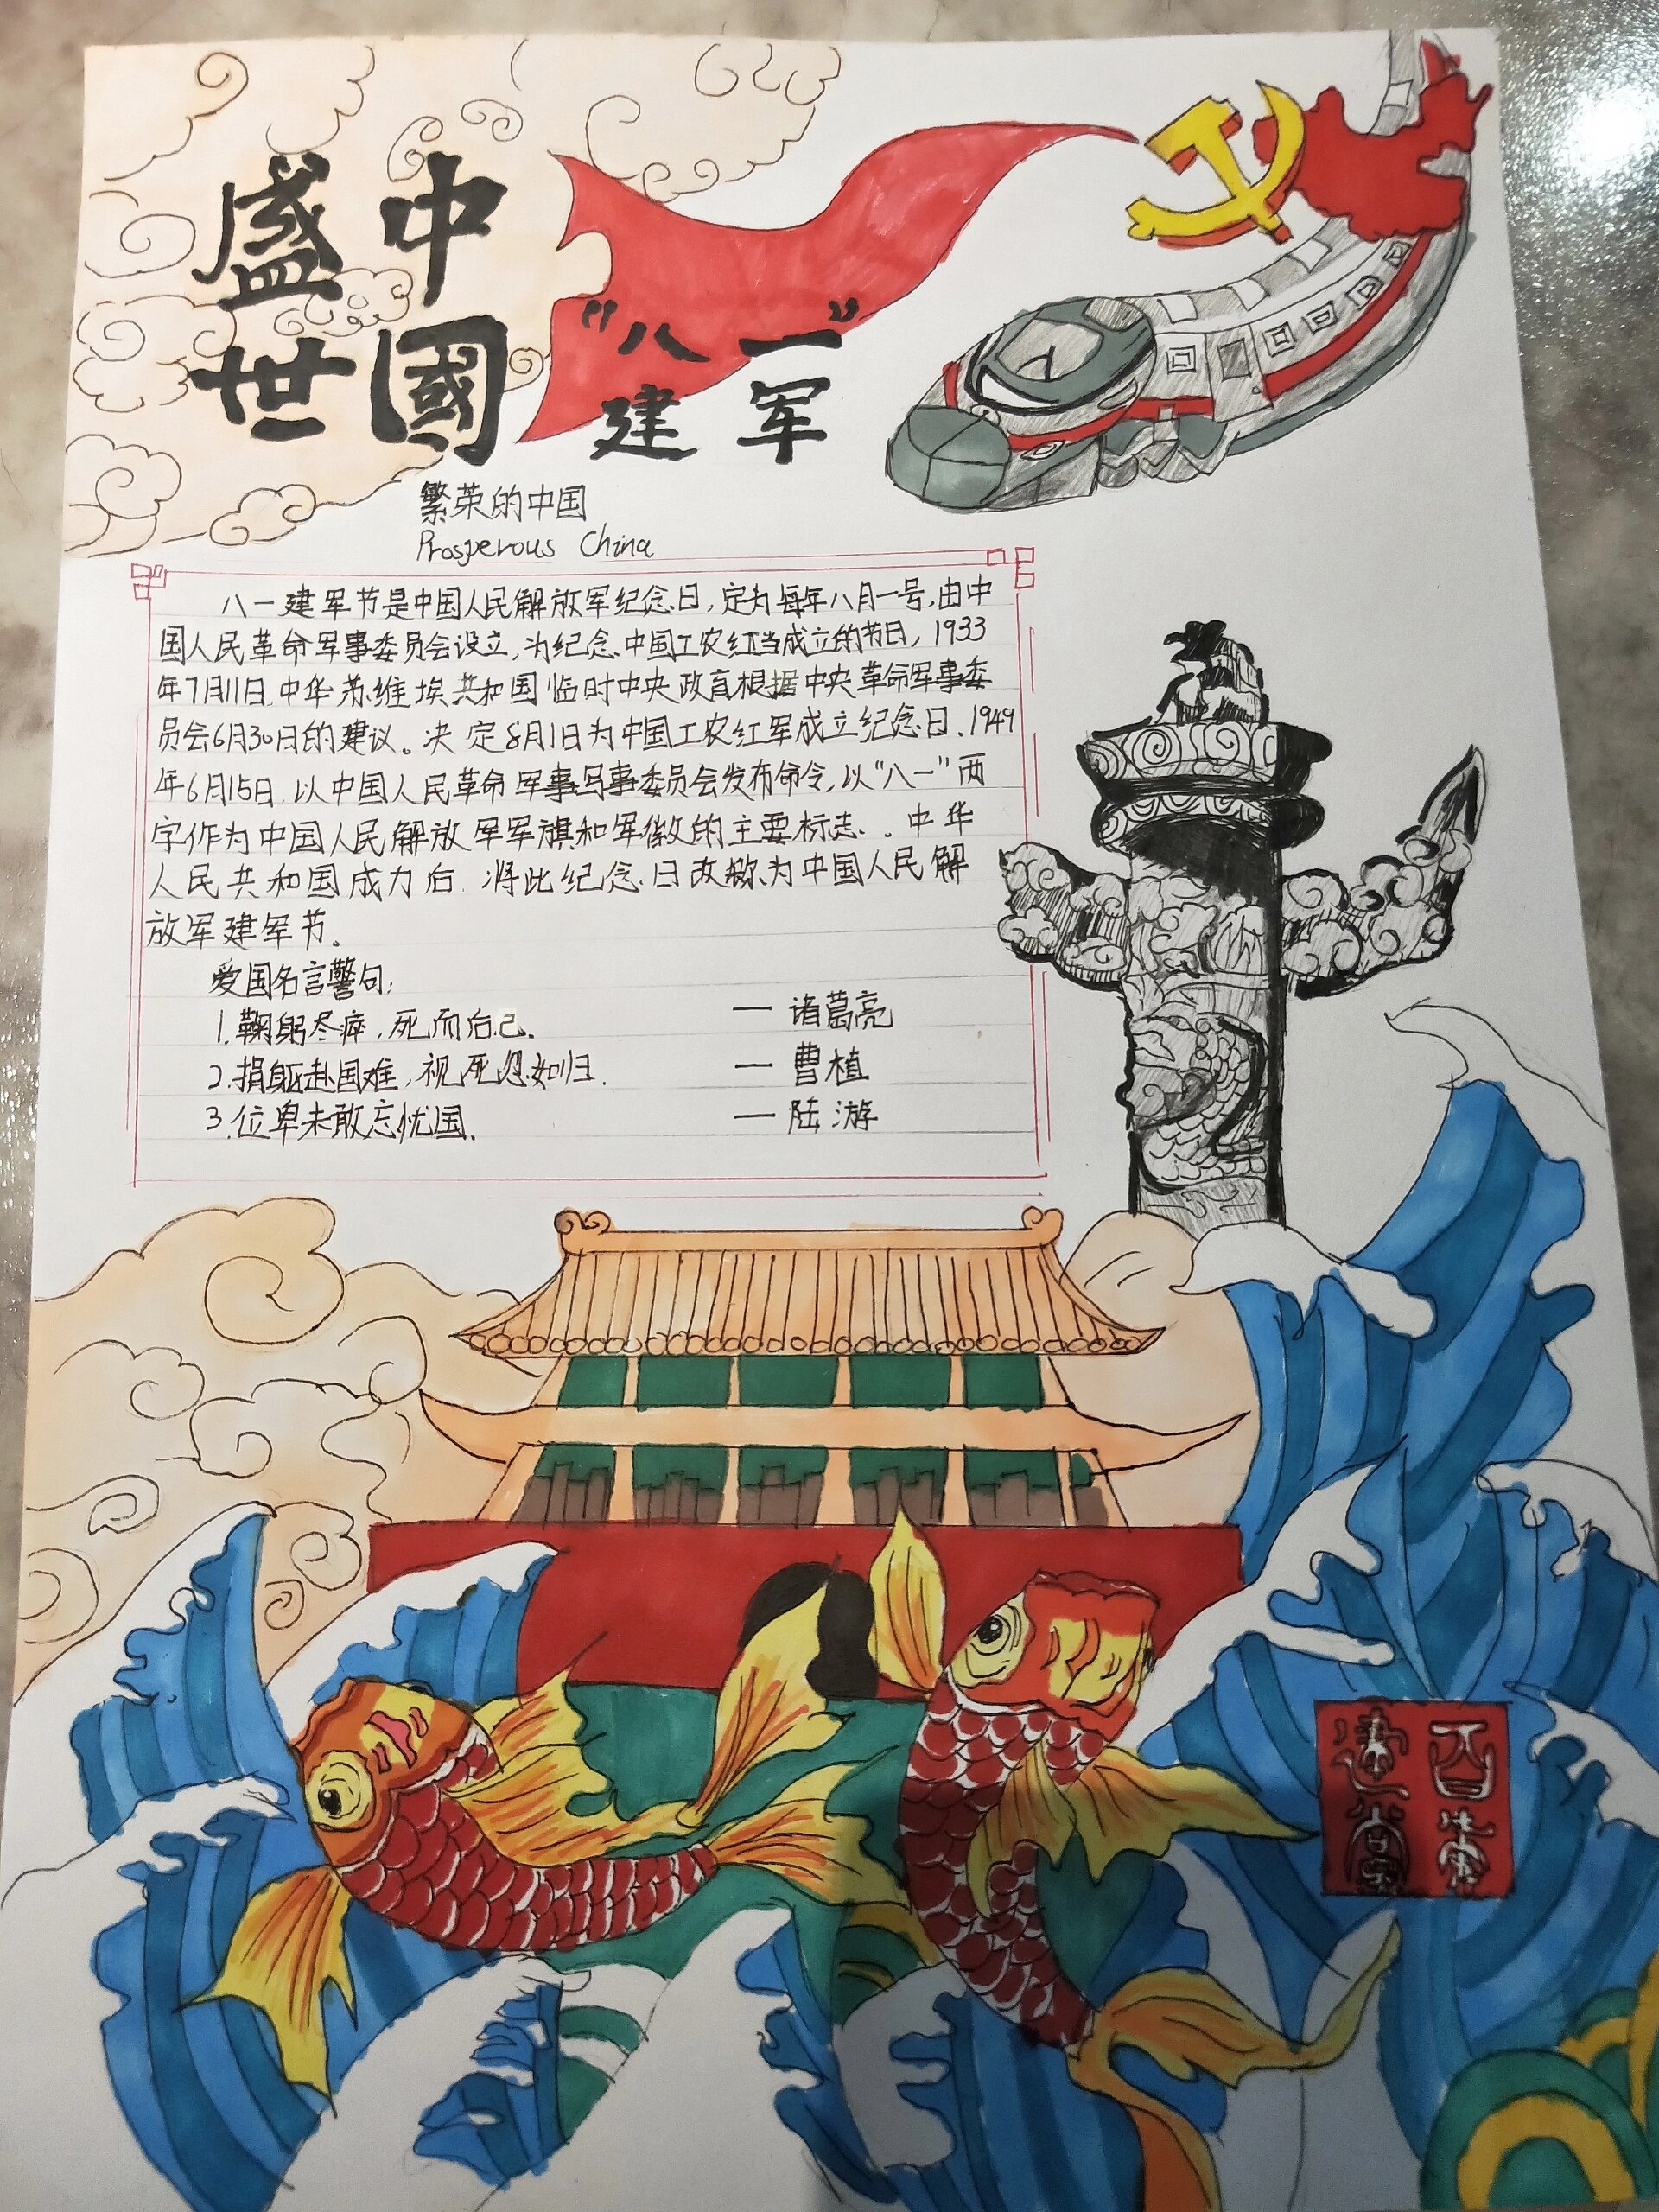 中国
盛世
"八一"
建军
繁荣的中国
Prosperous China
八一建军节是中国人民解放军纪念日,定为每年八月一号,由中
国人民革命军事委员会设立,为纪念中国工农红当成立的节日,1933
年7月11日,中华苏维埃共和国临时中央政府根据中央革命军事委
员会6月30日的建议。决定8月1日为中国工农红军成立纪念日.1949
年6月15日.以中国人民革命军事写事委员会发布命令,以"八一"两
字作为中国人民解放军军旗和军徽的主要标志.。中华
人民共和国成力后.将此纪念日改称为中国人民解
放军建军节。
爱国名言警句:
1.鞠躬尽瘁,死而后己. — 诸葛亮
2.捐躯赴国难,视死忽如归. — 曹植
3.位卑未敢忘忧国. — 陆游